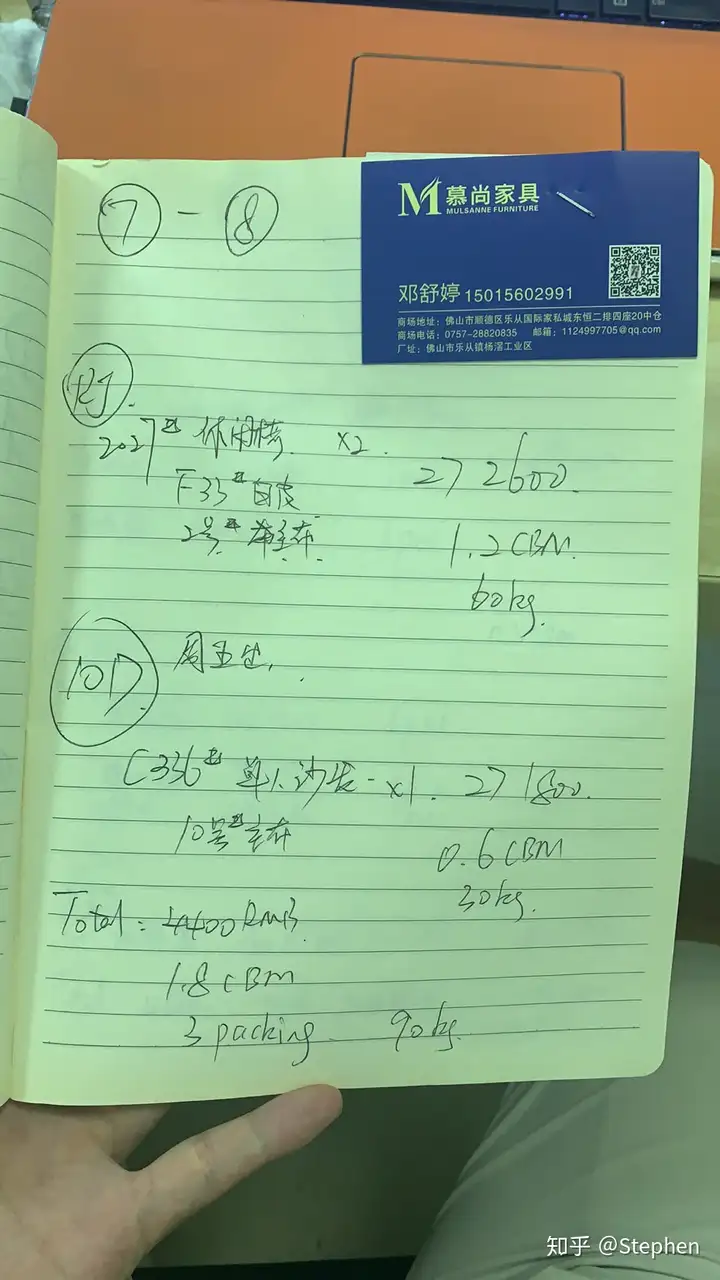 ⑦ - ⑧
M 慕尚家具
MULSANNE FURNITURE
邓舒婷 15015602991
商场地址：佛山市顺德区乐从国际家私城东恒二排四座20中仓
商场电话：0757-28820835 邮箱：1124997705@qq.com
厂址：佛山市乐从镇杨滘工业区
2027# 休闲椅 x2.
272600.
F33# 白皮
2号#
1.2CBM.
60kg.
101D.
周五
C336# 单人沙发 - x1. 271800.
10号#
0.6CBM
30kg.
Total: 4400RMB.
1.8CBM
3 packing 90kg.
知乎 @Stephen